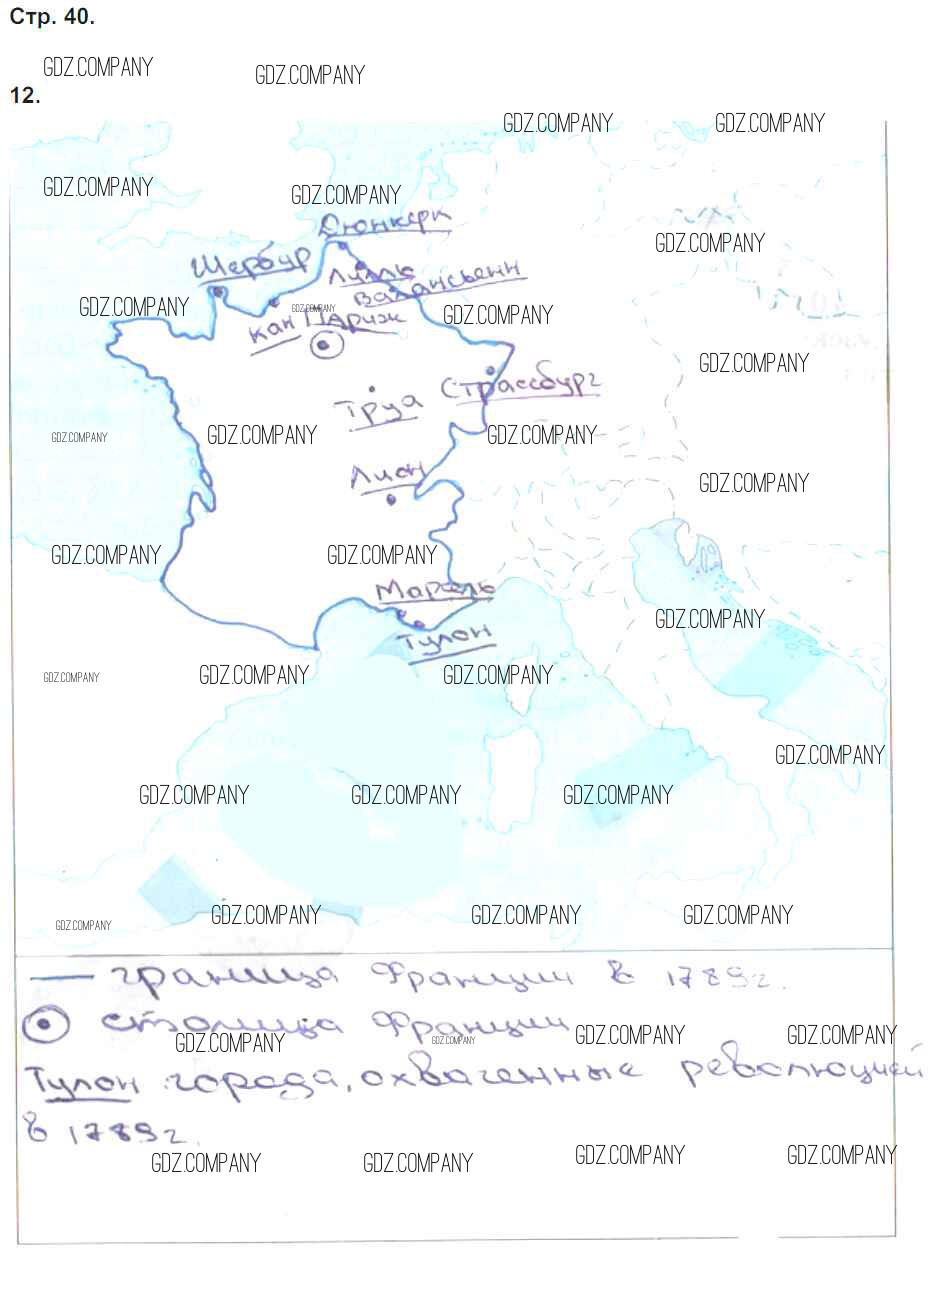 Стр. 40.
GDZ.COMPANY
GDZ.COMPANY
12.
GDZ.COMPANY
GDZ.COMPANY
GDZ.COMPANY
GDZ.COMPANY
Дюнкерк
GDZ.COMPANY
Шербур
Лилль
Валансьенн
GDZ.COMPANY
GDZ.COMPANY
GDZ.COMPANY
Кан
Париж
GDZ.COMPANY
Страссбург
Труа
GDZ.COMPANY
GDZ.COMPANY
GDZ.COMPANY
Лион
GDZ.COMPANY
GDZ.COMPANY
GDZ.COMPANY
Марсель
GDZ.COMPANY
Тулон
GDZ.COMPANY
GDZ.COMPANY
GDZ.COMPANY
GDZ.COMPANY
GDZ.COMPANY
GDZ.COMPANY
GDZ.COMPANY
GDZ.COMPANY
GDZ.COMPANY
GDZ.COMPANY
GDZ.COMPANY
граница Франции в 1789г.
столица Франции
GDZ.COMPANY
GDZ.COMPANY
GDZ.COMPANY
GDZ.COMPANY
Тулон города, охваченные революцией
в 1789г.
GDZ.COMPANY
GDZ.COMPANY
GDZ.COMPANY
GDZ.COMPANY